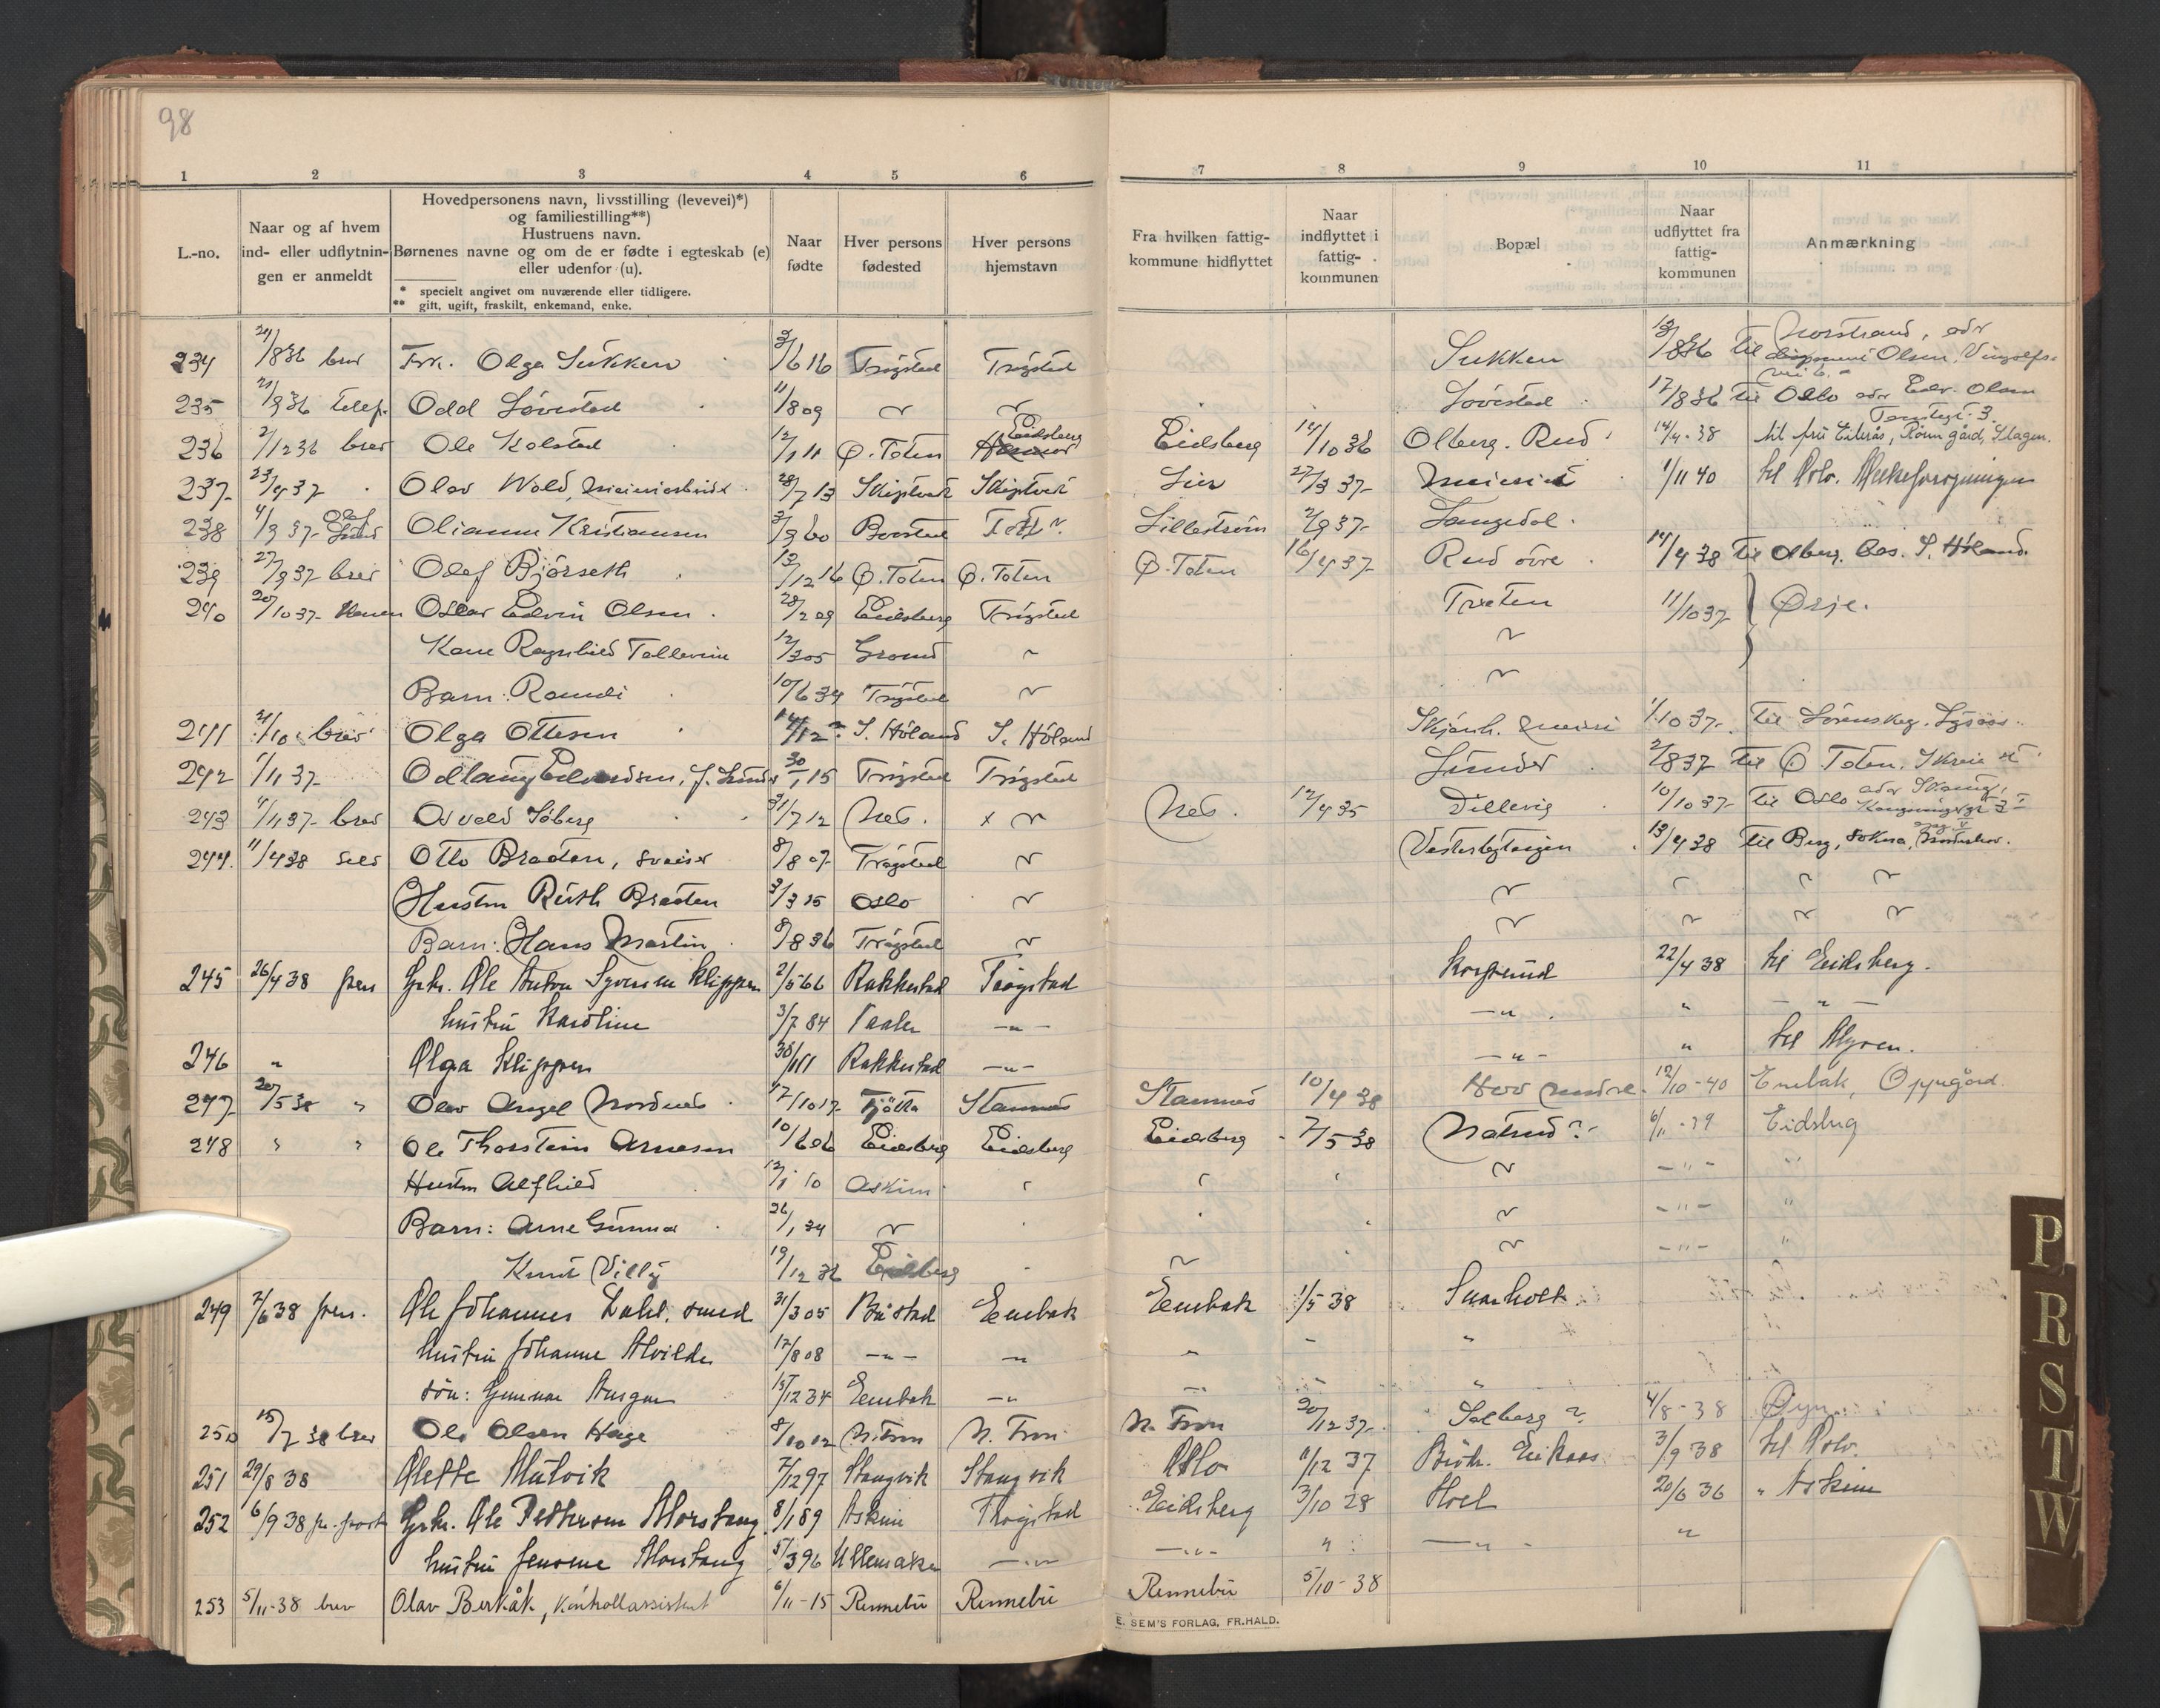 98
1 2 3 4 5 6 7 8 9 10 11
L.-no.
Naar og af hvem
ind- eller udflytnin-
gen er anmeldt
Hovedpersonens navn, livsstilling (levevei)*)
og familiestilling**)
Hustruens navn.
Børnenes navne og om de er fødte i egteskab (e)
eller udenfor (u).
* specielt angivet om nuværende eller tidligere.
** gift, ugift, fraskilt, enkemand, enke.
Naar
fødte
Hver persons
fødested
Hver persons
hjemstavn
Fra hvilken fattig-
kommune hidflyttet
Naar
indflyttet i
fattig-
kommunen
Bopæl
Naar
udflyttet fra
fattig-
kommunen
Anmærkning
234 brev Frk. Olga Sukken 3/6 16 Trøgstad Trøgstad Sukken 13/8 36 til Norstrand, adr Olsen
235 21/9 36 telef. Odd Løvestad 11/8 09 ~ ~ Løvestad 17/8 36 til Oslo adr Edv. Olsen
236 2/12 36 brev Ole Kolstad 12/1 11 Ø. Toten Eidsberg Eidsberg 14/10 36 Olberg. Rud 14/4-38 til fru Eikrås, Rom gård, Slagen.
237 23/4 37 Olav Wold, 28/7 13 Skiptvet Skiptvet Lier 27/3 37 Meieriet 1/11 40 til Oslo.
238 4/9 37 Olianne Kristiansen 3/9 60 Lillestrøm 2/9 37 Langedal
239 27/9 37 brev Olaf Bjørseth 13/12 16 Ø. Toten Ø. Toten Ø. Toten 16/4 37 Rud øvre 14/4 38 til Olberg. bos. S. Høland
240 20/10 37 Oskar Edvin Olsen 28/2 09 Eidsberg Trøgstad Træten 11/10 37 Ørje.
Kone Ragnhild Tallevine 12/3 05 ~ ~
Barn: Randi 10/6 34 Trøgstad ~ ~
241 brev Olga Ottesen S. Høland S. Høland Skjønh. 1/10 37 til Lørenskog.
242 1/11 37 Odlaug 30/1 15 Trøgstad Trøgstad Lunder 2/8 37 til Ø Toten, Skreia st
243 4/11 37 brev Osvald Søberg 31/7 12 Nes. x ~ Nes. 12/4 35 Dillevig 10/10 37 til Oslo adr
244. 11/4 38 selv Otto Braaten, sveiser 8/8 07 Trøgstad ~ 13/4 38 til Berg, Sokna, Norderhov.
Hustru Ruth Braaten 3/3 15 Oslo ~ ~ ~ ~ ~
Barn: Hans Martin 8/8 36 Trøgstad ~ ~ ~ ~ ~
245 26/4 38 pers Grbr. Ole Anton Syversen Klippen 2/5 66 Rakkestad Trøgstad Korsrud 22/4 38 til Eidsberg.
hustru Karoline 3/7 84 Vaaler —"— —" " — " —
246 " Olga Klippen 30/1 11 Rakkestad —"— —"— " til Mysen.
247 20/5 38 " Olav Angel Nordnes 17/10 17 Tjøtta Stamnes Stamnes 10/4 38 Hov nedre 12/10-40 Enebak, Oppegård.
248 " " Ole Thorstein Arnesen 10/6 06 Eidsberg Eidsberg Eidsberg 7/5 38 6/11-39 Eidsberg
Hustru Alfhild 12/1 10 Askim " " " ~ —"— "
Barn: Arne Gunnar 26/1 34 ~ ~ —"— "
Knut Villy 19/12 36 Eidsberg ~ ~ —"— "
249 7/6 38 pers. Ole Johannes Dahl, smed 31/3 05 Båstad Enebak Enebak 1/5 38 Svarholt
hustru Johanne Alvilde 17/8 08 —"— —"— " " "
søn: Gunnar Asgar 15/12 34 Enebak —" —" "
250 15/7 38 brev Ole Olsen Hage 8/10 12 N. Fron N. Fron N. Fron 20/12 37 Solberg ? 4/8-38
251 29/8 38 Olette Mulvik 7/12 97 Stangvik Stangvik Oslo 11/12 37 3/9 38 til Oslo.
252 6/9 38 pr. post Grbr. Ole Pettersen Morstang 8/1 89 Askim Trøgstad Eidsberg 3/10 28 Hoel 20/6 36 " Askim
hustru Morstang 5/3 96 Ullensaker —"— —"— " —"— "
253 5/11-38 brev Olav Berkåk, kontrollassistent 6/11-15 Rennebu Rennebu Rennebu 5/10-38
E. SEM'S FORLAG, FR.HALD.
P
R
S
T
W